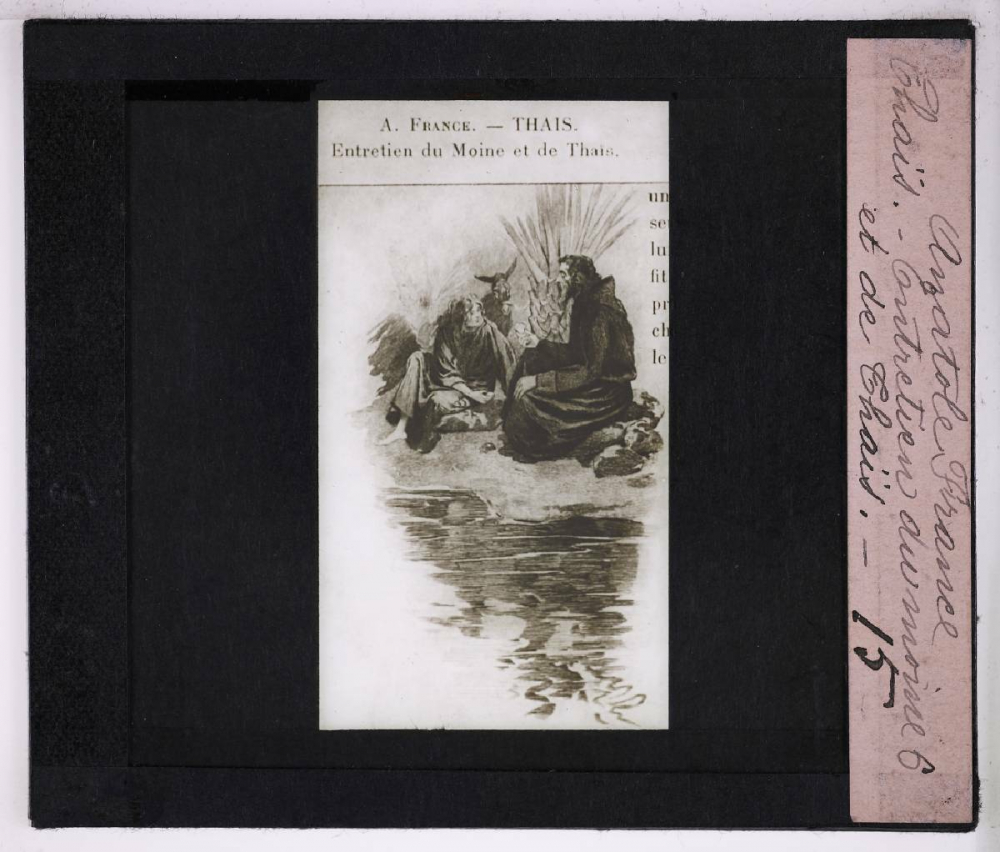 A. FRANCE. — THAIS.
Entretien du Moine et de Thais.
un
se
lu
fit
pr
ch
le
Anatole France 6
Thaïs. - Entretien du moine
et de Thaïs. — 15